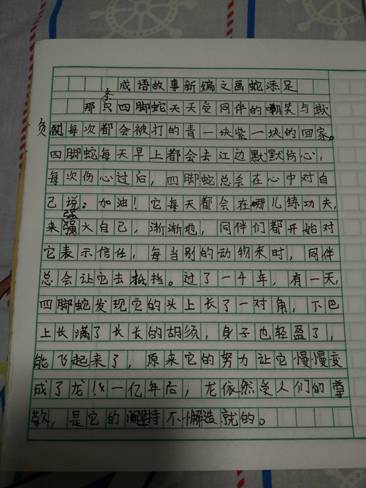 成语故事新编之画蛇添足
那只四脚蛇天天受同伴的嘲笑与欺
负,每次都会被打的青一块紫一块的回家。
四脚蛇每天早上都会去江边默默伤心,
每次伤心过后,四脚蛇总会在心中对自
己说:加油!它每天都会在哪儿练功夫,
来强大自己,渐渐地,同伴们都开始对
它表示信任,每当别的动物来时,同伴
总会让它去抵挡。过了一千年,有一天,
四脚蛇发现它的头上长了一对角,下巴
上长满了长长的胡须,身子也轻盈了,
能飞起来了,原来它的努力让它慢慢变
成了龙!一亿年后,龙依然受人们的尊
敬,是它的坚持不懈造就的。